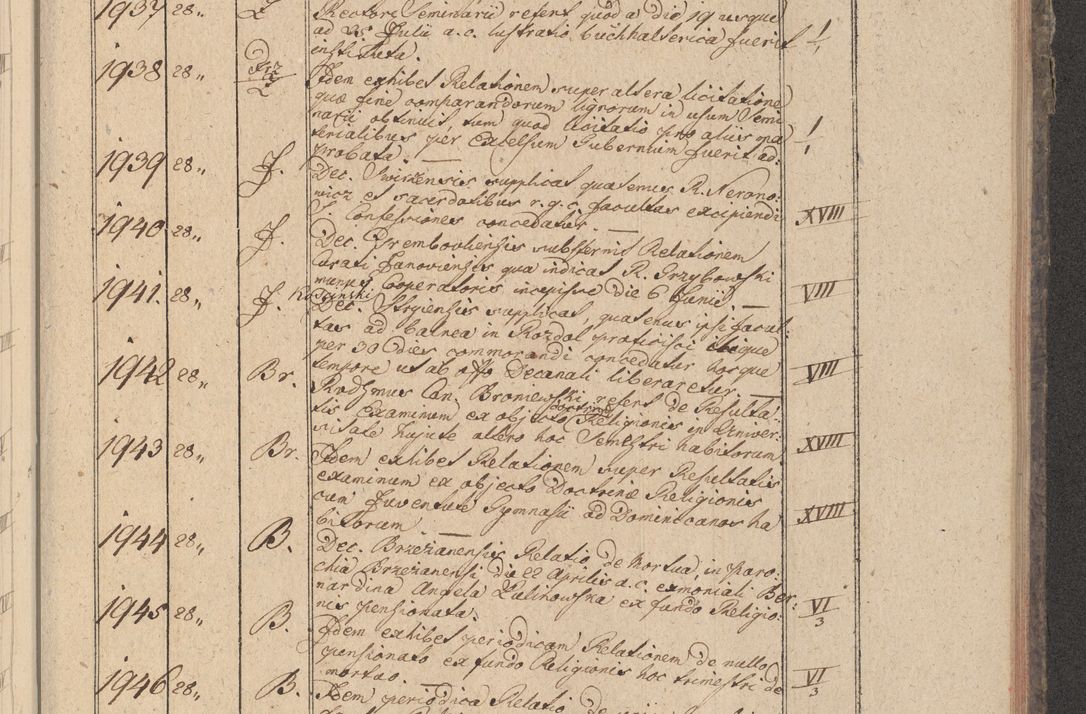 1937 28„ Z Rectori Seminarii refert quod a die 19 usque
ad 25 Julii a.c. lustratio buchhalterica fuerit
instituta. 1/1
1938 28„ Z Idem exhibet Relationem super altera licitatione
quæ fine comparandorum lignorum in usum Semi
narii obtinuit, tum quod licitatio pro aliis ma
terialibus per excelsum Gubernium fuerit ad: 1/1
probata.
1939 28„ J. Dec. Swirzensis supplicat quatenus R. Nerono:
wicz et sacerdotibus r.g.c. facultas excipiendi
Confessiones concedatur. XVIII
1940 28„ J. Dec. Trembovliensis substernit Relationem
Curati Janoviensis qua indicat R. Grzybowski
munus Cooperatoris incepisse die 6 Junii. VIII
1941. 28„ J. Dec. Stryiensis supplicat, quatenus ipsi facul:
tas ad balnea in Rozdol proficisci ibique
per 30 dies commorandi concedatur hocque
tempore ut ab offo Decanali liberaretur. VIII
1942 28„ Br. Rndssmus Can. Broniewski refert de Resulta
tis Examinum ex objecto doctrinæ Religionis in Univer
sitate hujate altero hoc Semestri habitorum. XVIII
1943 28„ Br. Idem exhibet Relationem super Resultatis
examinum ex objecto Doctrinæ Religionis
cum Juventute Gymnasii ad Dominicanos ha
bitorum. XVIII
1944 28„ B. Dec. Brzezanensis Relatio de mortua, in Paro:
chia Brzezanensi die 22 Aprilis a.c. exmoniali Ber:
nardina Angela Kalinowska ex fundo Religio:
nis pensionata. VI/3
1945 28„ B. Idem exhibet periodicam Relationem de nullo
pensionato ex fundo Religionis hoc trimestri de
mortuo. VI/3
1946 28„ B. Idem periodica Relatio